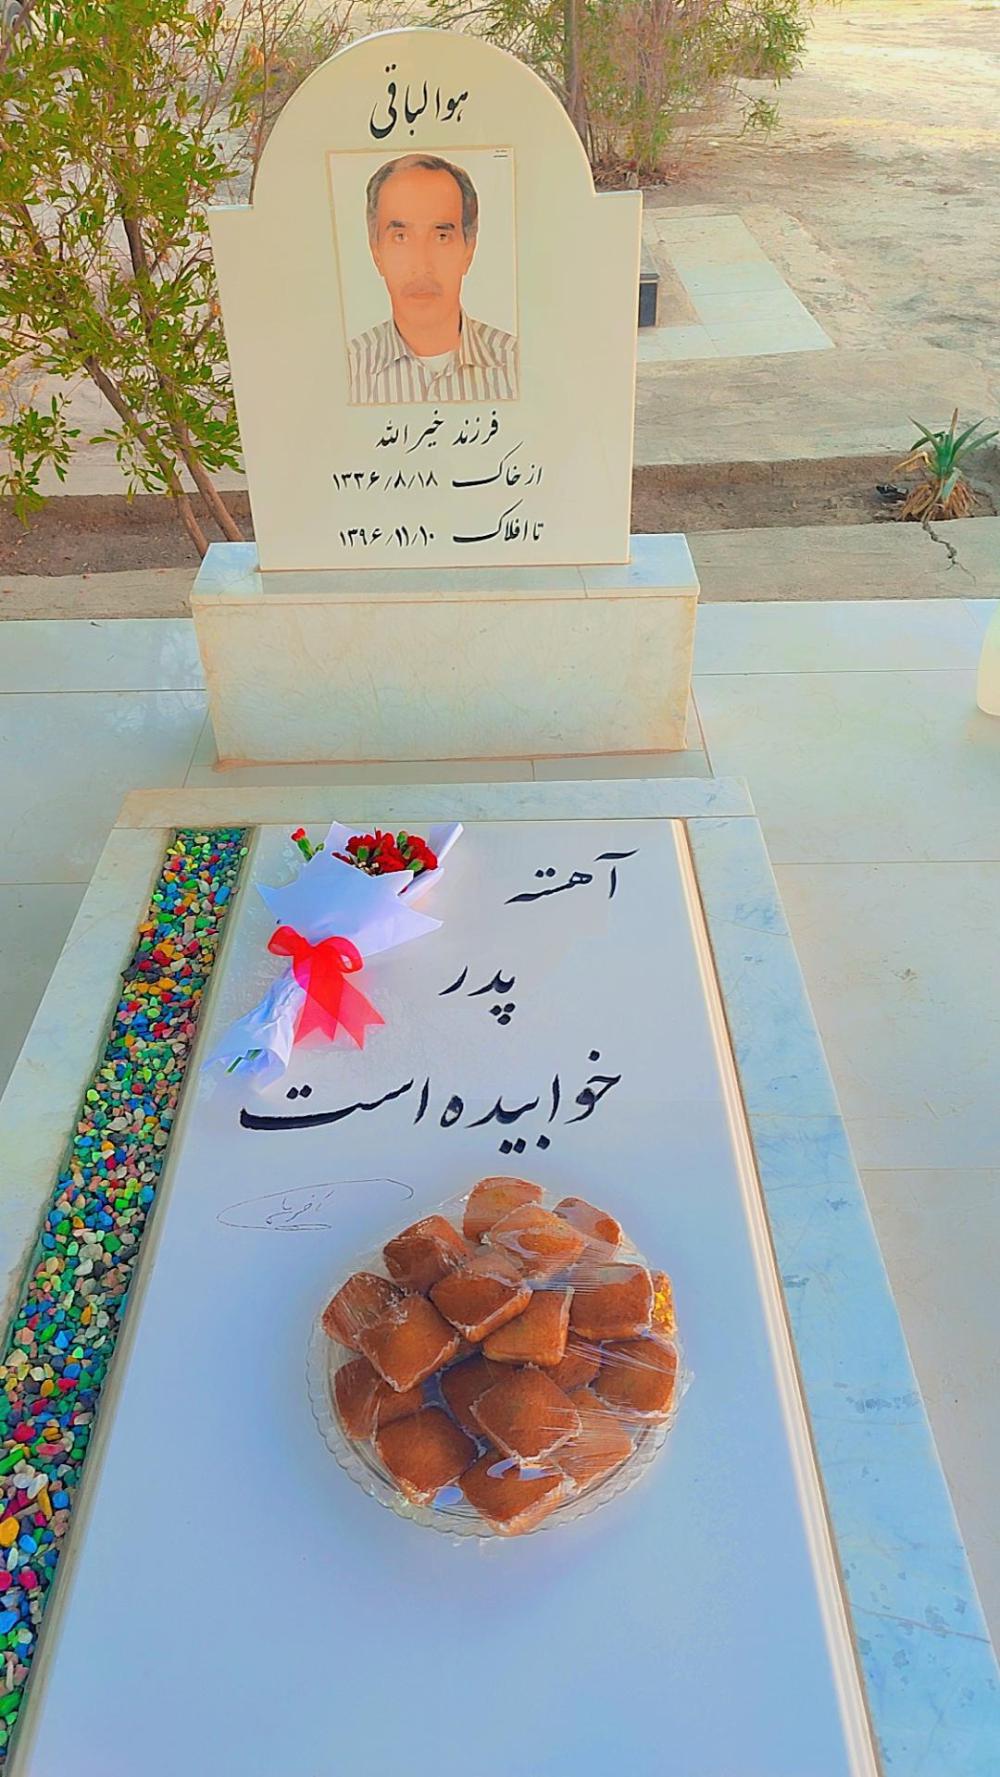 هوالباقی
فرزند خیرالله
از خاک ۱۳۳۶/۸/۱۸
تا افلاک ۱۳۹۶/۱۱/۱۰
آهسته
پدر
خوابیده است